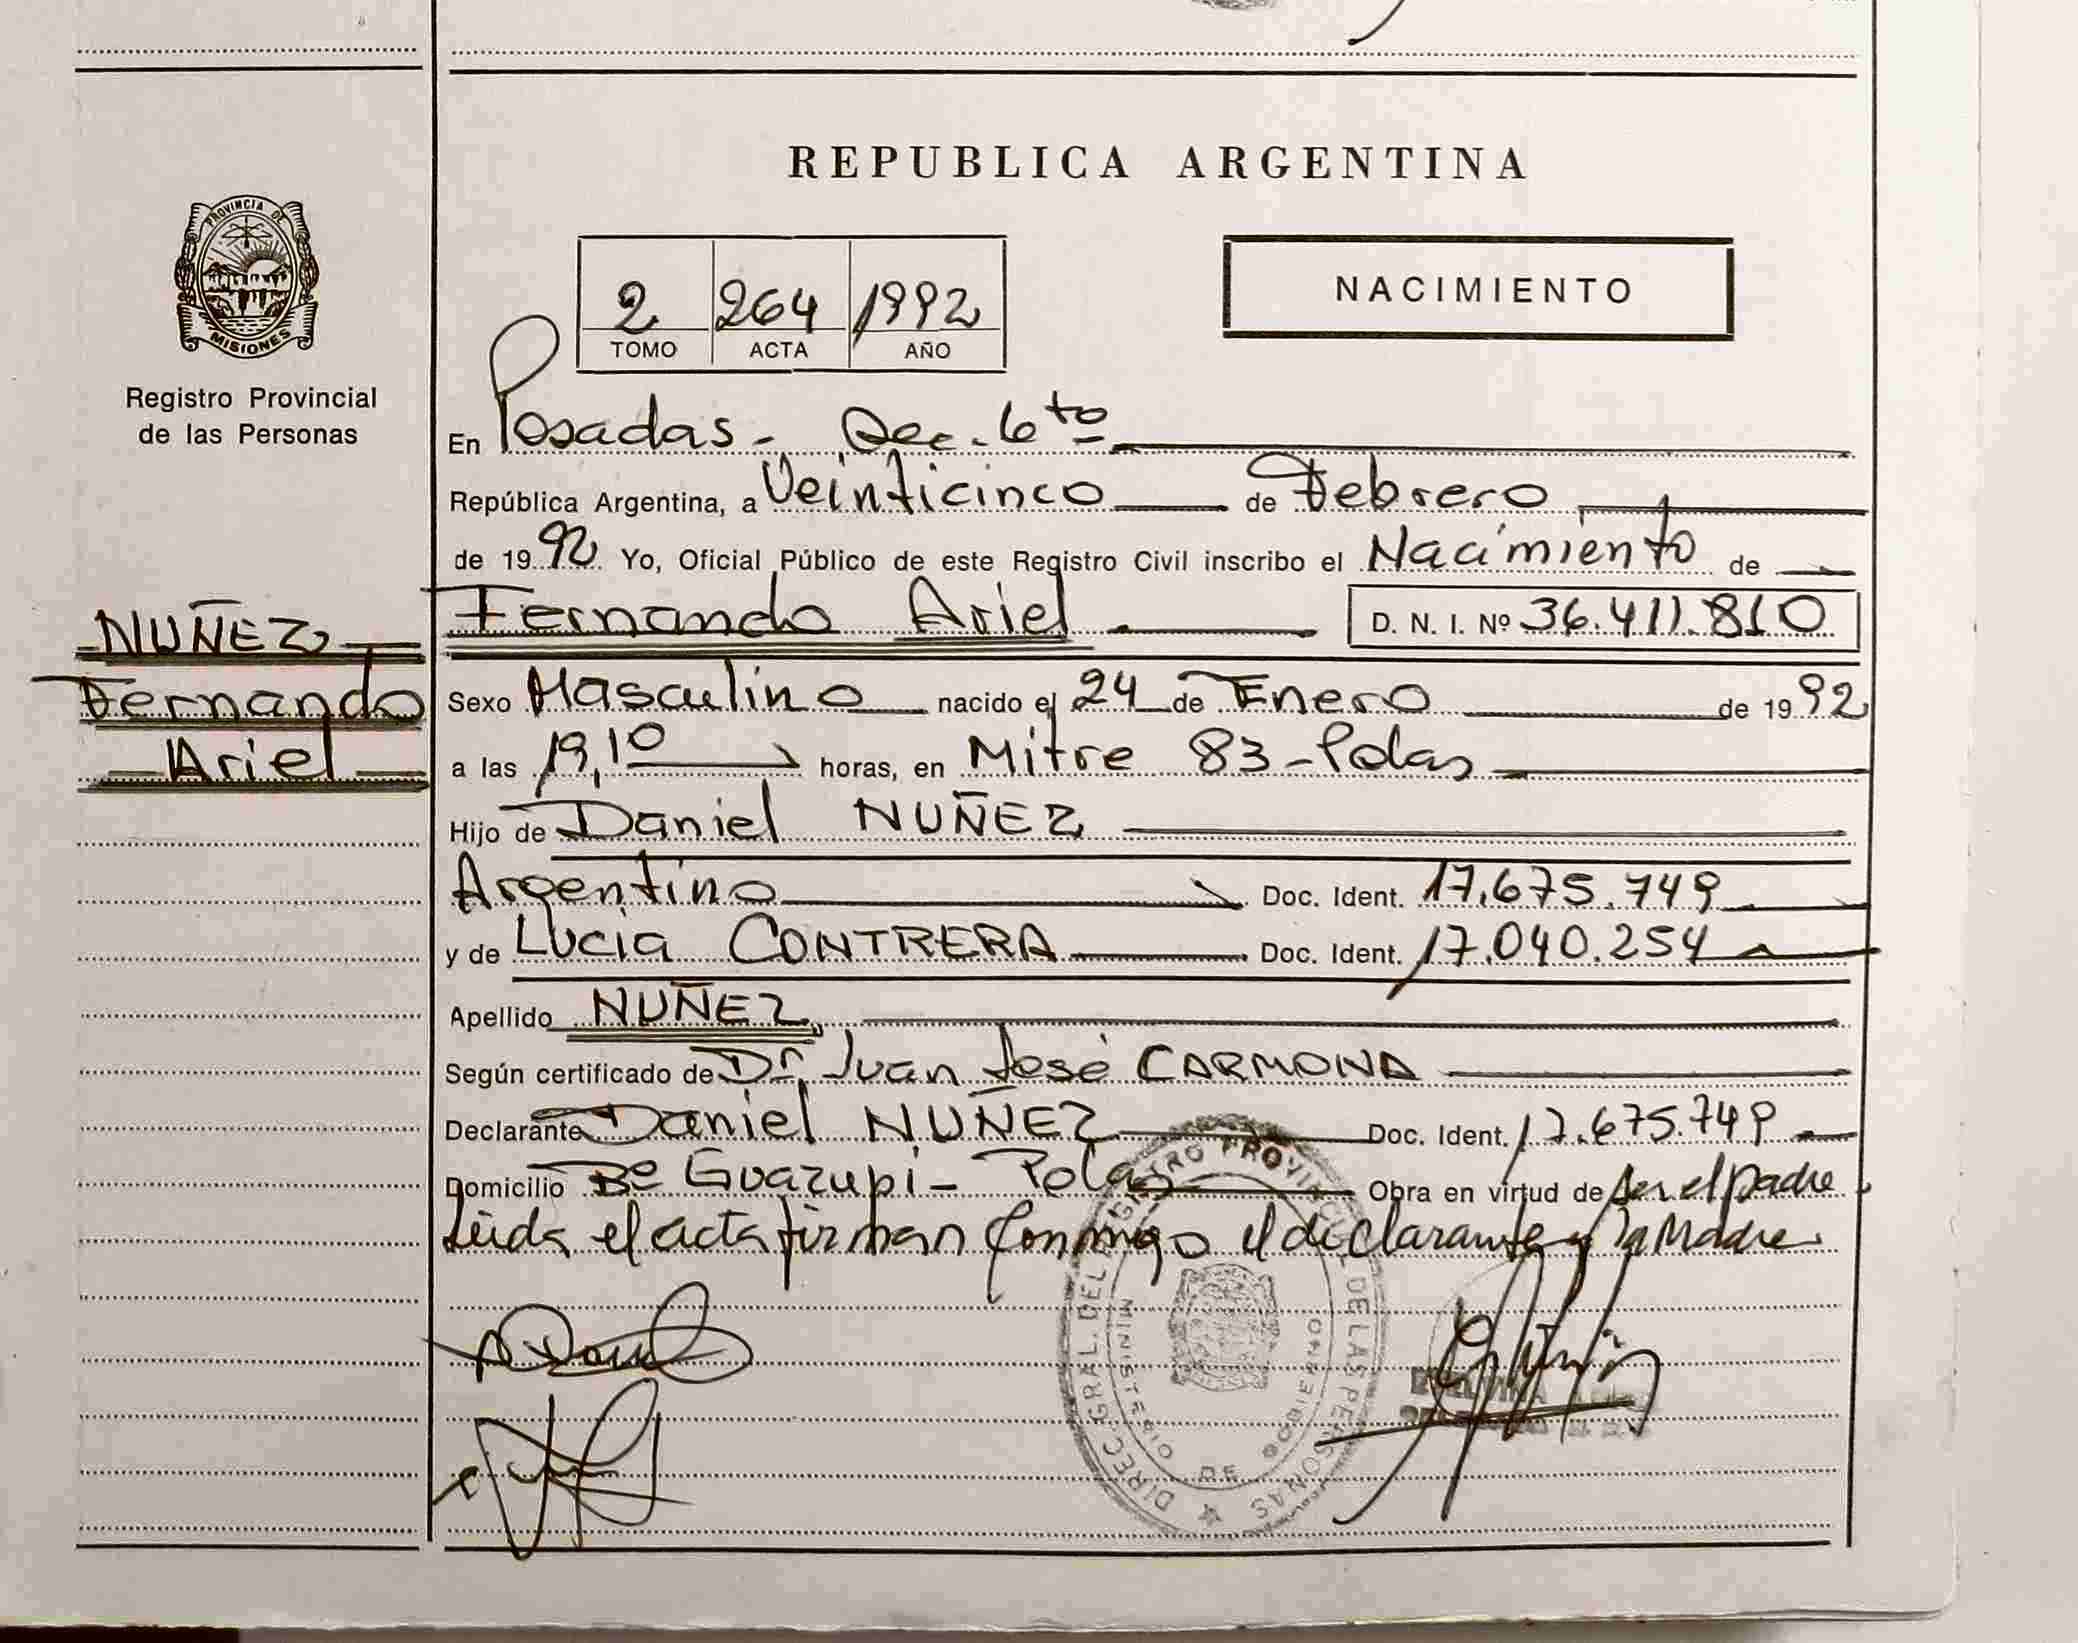 REPUBLICA ARGENTINA
PROVINCIA DE
MISIONES
Registro Provincial
de las Personas
2 264 1992
TOMO ACTA AÑO
NACIMIENTO
En Posadas - Sec. 6to
República Argentina, a Veinticinco de Febrero
de 1992 Yo, Oficial Público de este Registro Civil inscribo el Nacimiento de
NUÑEZ
Fernando
Ariel
Fernando Ariel D. N. I. Nº 36.411.810
Sexo Masculino nacido el 24 de Enero de 1992
a las 19,10 horas, en Mitre 83 - Pdas
Hijo de Daniel NUÑEZ
Argentino Doc. Ident. 17.675.749
y de Lucia CONTRERA Doc. Ident. 17.040.254
Apellido NUÑEZ
Según certificado de Dr. Juan José CARMONA
Declarante Daniel NUÑEZ Doc. Ident. 17.675.749
Domicilio Bº Guazupi - Pdas Obra en virtud de ser el padre
Leida el acta firman conmigo el declarante y la Madre.
DIREC. GRAL. DEL REGISTRO PROVINCIAL DE LAS PERSONAS
MINISTERIO DE GOBIERNO